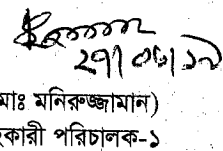 ২৭।০৮।১৯
মোঃ মনিরুজ্জামান)
কারী পরিচালক-১